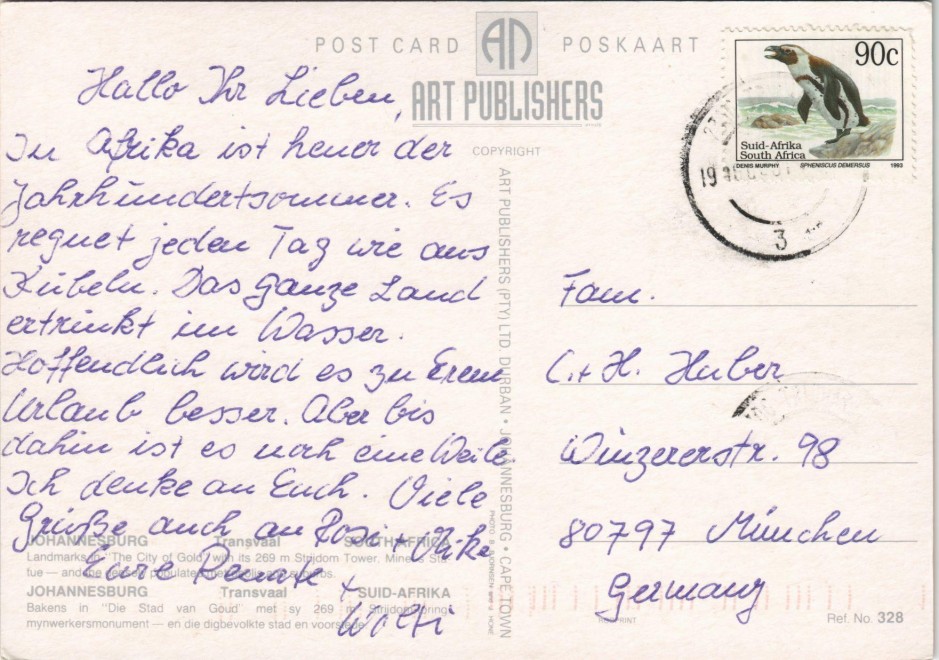 POST CARD AP POSKAART
ART PUBLISHERS
COPYRIGHT
90c
Suid-Afrika
South Africa
DENIS MURPHY SPHENISCUS DEMERSUS 1993
19
3
Hallo Ihr Lieben,
In Afrika ist heuer der
Jahrhundertsommer. Es
regnet jeden Tag wie aus
Kübeln. Das ganze Land
ertrinkt im Wasser.
Hoffendlich wird es zu Eurem
Urlaub besser. Aber bis
dahin ist es noch eine Weile
Ich denke an Euch. Viele
Grüße auch an Rosi +
Eure Renate +
Wolfi
Fam.
C. + H. Huber
Winzererstr. 98
80797 München
Germany
ART PUBLISHERS (PTY) LTD. DURBAN • JOHANNESBURG • CAPE TOWN
JOHANNESBURG Transvaal SOUTH AFRICA
Landmarks in "The City of Gold" with its 269 m Strijdom Tower, Miners Sta-
tue — and the
JOHANNESBURG Transvaal SUID-AFRIKA
Bakens in "Die Stad van Goud" met sy 269 m Strijdomtoring,
mynwerkersmonument — en die digbevolkte stad en voorstede.
Ref. No. 328